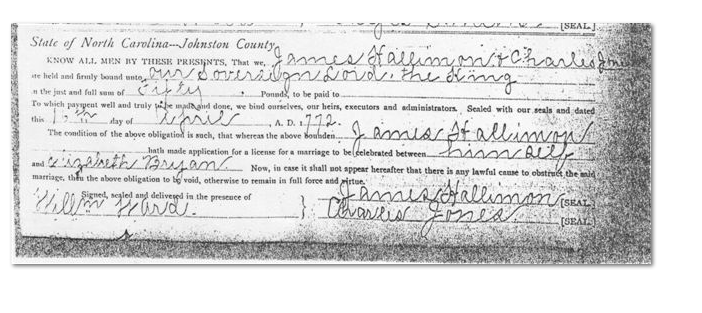 [SEAL]
State of North Carolina---Johnston County
KNOW ALL MEN BY THESE PRESENTS, That we, James Hallimon & Charles Jones
are held and firmly bound unto our Sovereign Lord, the King
in the just and full sum of Fifty Pounds, to be paid to
To which payment well and truly to be made and done, we bind ourselves, our heirs, executors and administrators. Sealed with our seals and dated
this day of April, A. D. 1772.
The condition of the above obligation is such, that whereas the above bounden James Hallimon
hath made application for a license for a marriage to be celebrated between himself
and Elizabeth Bryan. Now, in case it shall not appear hereafter that there is any lawful cause to obstruct the said
marriage, then the above obligation to be void, otherwise to remain in full force and virtue.
Signed, sealed and delivered in the presence of James Hallimon [SEAL]
Willm Ward. } Charles Jones [SEAL]